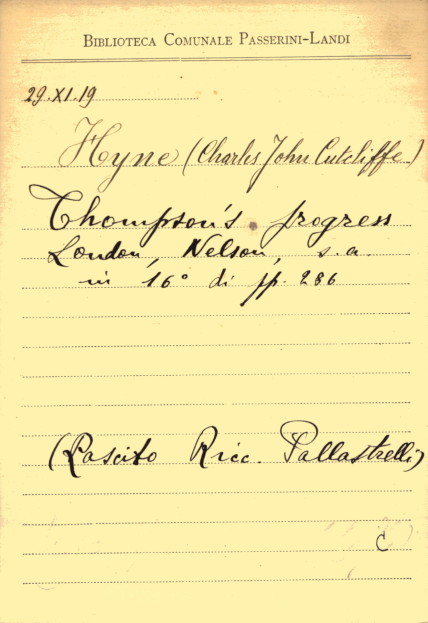 BIBLIOTECA COMUNALE PASSERINI-LANDI
29.XI.19
Hyne (Charles John Cutcliffe)
Thompson's progress
London, Nelson, s. a.
in 16° di pp. 286
(Lascito Ricc. Pallastrelli)
C